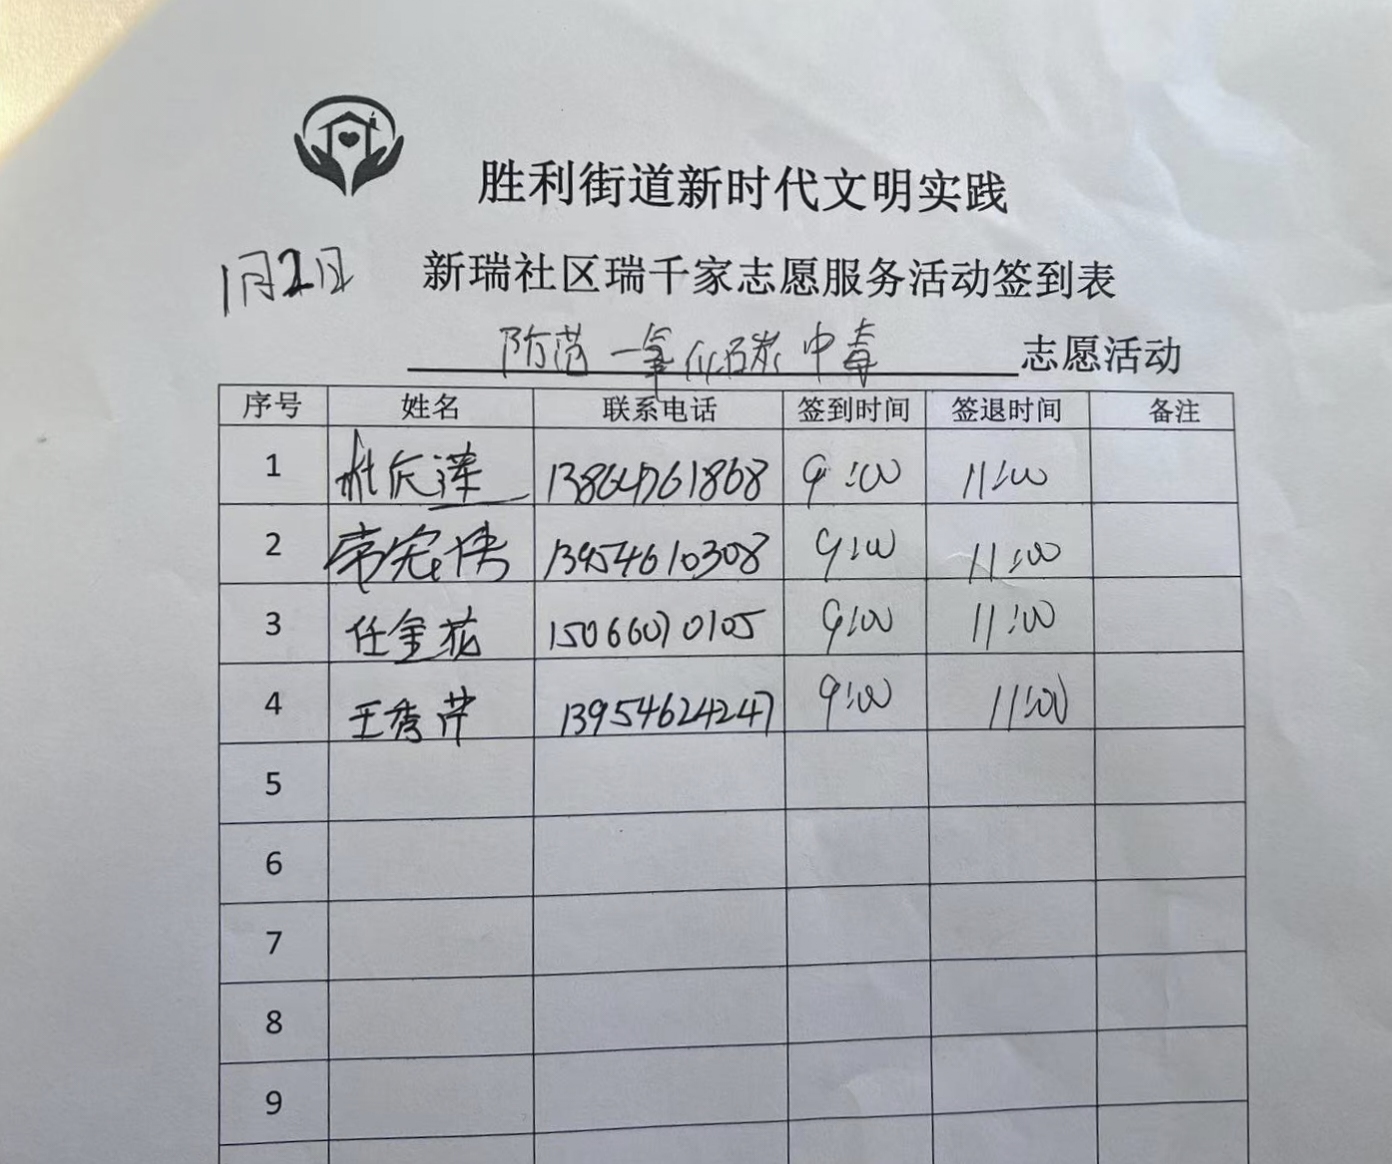 胜利街道新时代文明实践
1月2日 新瑞社区瑞千家志愿服务活动签到表
防范一氧化碳中毒 志愿活动
序号 姓名 联系电话 签到时间 签退时间 备注
1 9:00 11:00
2 13954610308 9:00 11:00
3 任金花 15066070105 9:00 11:00
4 王秀芹 13954624247 9:00 11:00
5
6
7
8
9